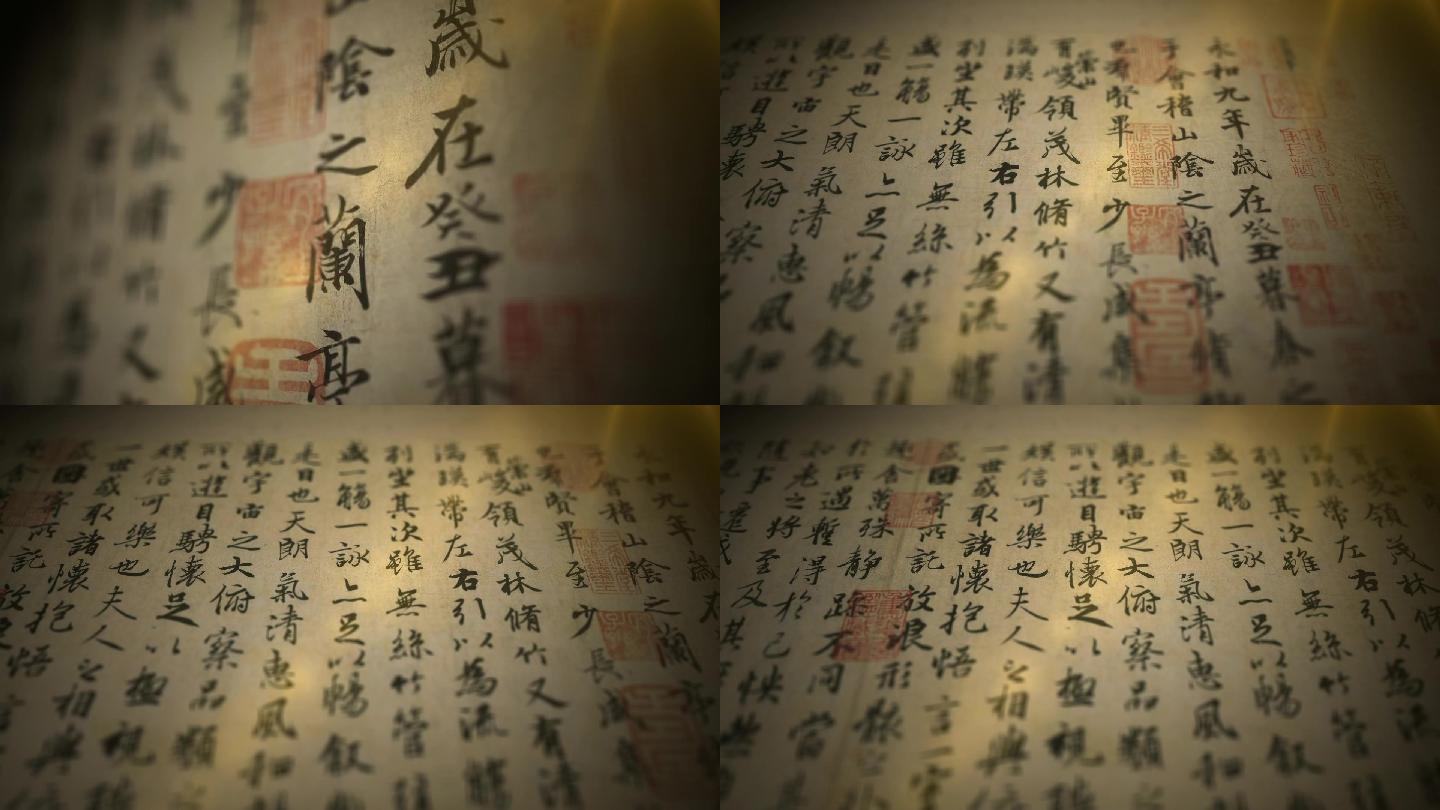 歲在癸丑暮
陰之蘭亭
少長咸
竹又
永和九年歲在癸丑暮春
于會稽山陰之蘭亭脩
羣賢畢至少長咸集
崇山
有峻領茂林脩竹又有清
湍暎帶左右引以為流觴
列坐其次雖無絲竹管
盛一觴一詠亦足以暢叙
是日也天朗氣清惠風和
觀宇宙之大俯察
所以遊目騁懷
永和九年歲
會稽山陰之蘭亭
羣賢畢至少長咸
崇山
有峻領茂林脩竹又有清
湍暎帶左右引以為流觴
列坐其次雖無絲竹管
盛一觴一詠亦足以暢叙
是日也天朗氣清惠風和
觀宇宙之大俯察品類
所以遊目騁懷足以極視
娛信可樂也夫人之相與
一世或取諸懷抱
因寄所託放浪
殊舍
有峻領茂林
湍暎帶左右引以為流
列坐其次雖無絲竹管
盛一觴一詠亦足以暢叙
是日也天朗氣清惠風和
觀宇宙之大俯察品類
所以遊目騁懷足以極視
娛信可樂也夫人之相與
一世或取諸懷抱悟言一室
因寄所託放浪形
趣舍萬殊静躁不同當
於所遇暫得於己怏
知老之將至及其
隨事遷